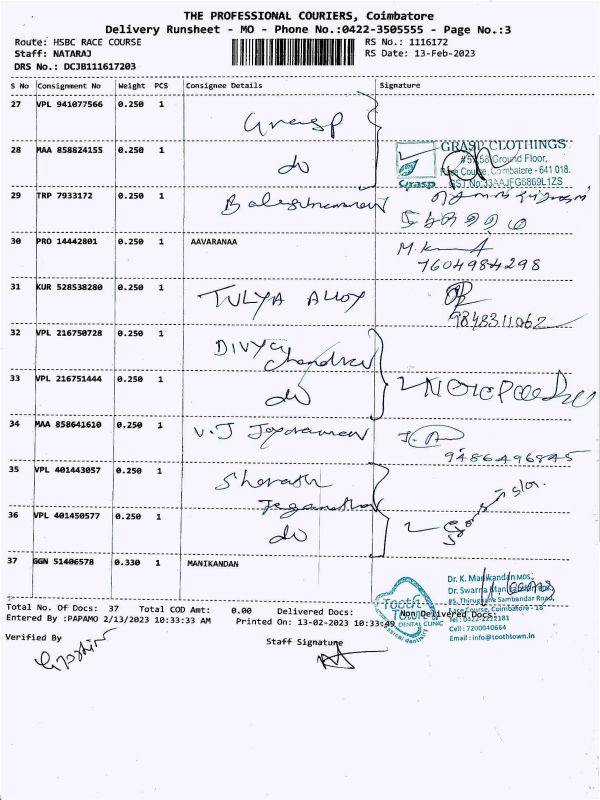 THE PROFESSIONAL COURIERS, Coimbatore
Delivery Runsheet - MO - Phone No.:0422-3505555 - Page No.:3
Route: HSBC RACE COURSE RS No.: 1116172
Staff: NATARAJ RS Date: 13-Feb-2023
DRS No.: DCJB111617203
S No Consignment No Weight PCS Consignee Details Signature
27 VPL 941077566 0.250 1 Grasp
28 MAA 858824155 0.250 1 do
GRASP CLOTHINGS
Ground Floor,
Race Course, Coimbatore - 641 018.
GST No:33AAJFG6869L1ZS
Grasp
29 TRP 7933172 0.250 1
30 PRO 14442801 0.250 1 AAVARANAA
7604984298
31 KUR 528538280 0.250 1 TULYA ALLOY
9848311062
32 VPL 216750728 0.250 1 DIVYA Chandran
33 VPL 216751444 0.250 1 do
34 MAA 858641610 0.250 1 V.J Jayaraman
9486496845
35 VPL 401443057 0.250 1 Sharath Jeganathan
36 VPL 401450577 0.250 1 do
S/o.
37 GGN 51406578 0.330 1 MANIKANDAN
Dr. K. Manikandan MDS.
Dr. Swarna
Race Course, Coimbatore - 18
Tel : 0422-2222181
Cell : 7200040664
Email : info@toothtown.in
Tooth Town
DENTAL CLINIC
Total No. Of Docs: 37 Total COD Amt: 0.00 Delivered Docs: Non Delivered Docs:
Entered By :PAPAMO 2/13/2023 10:33:33 AM Printed On: 13-02-2023 10:33:49
Verified By Staff Signature